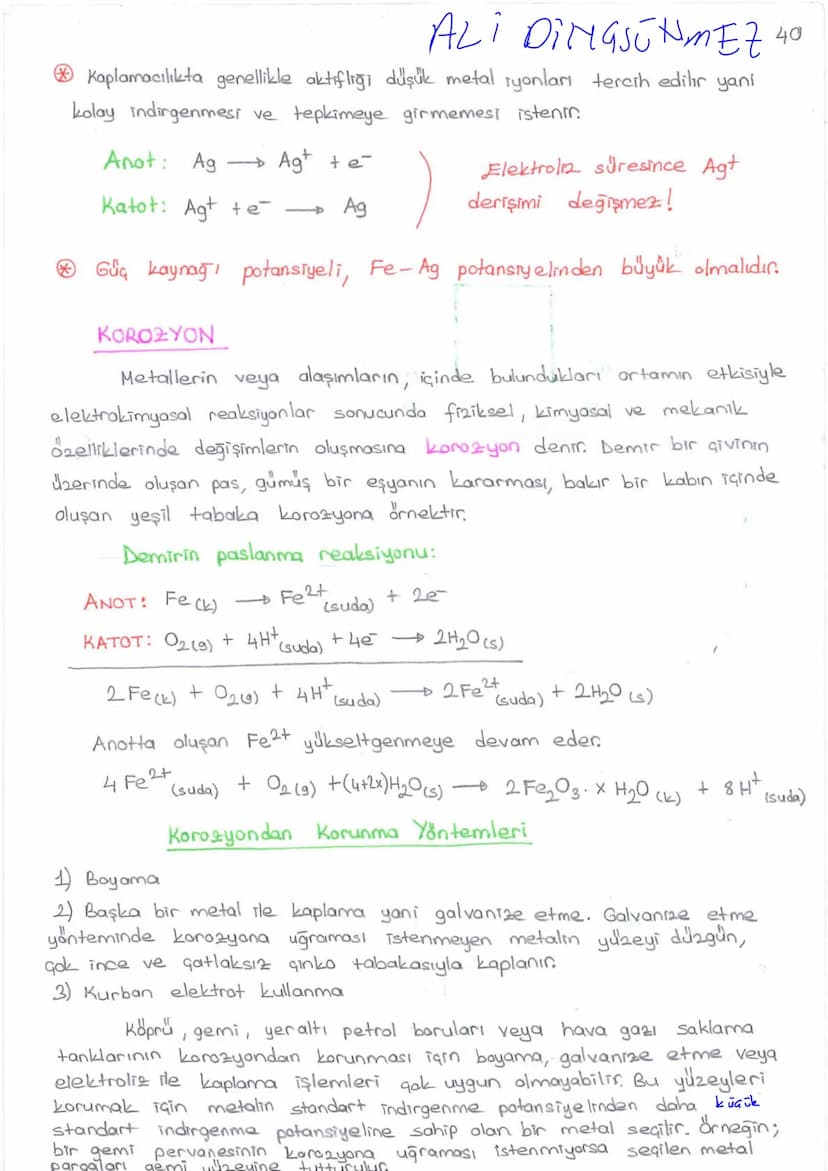 ALİ DİNÇSÖNMEZ 40
⊛ Kaplamacılıkta genellikle aktifliği düşük metal iyonları tercih edilir yani
kolay indirgenmesi ve tepkimeye girmemesi istenir.
Anot: Ag → Ag⁺ + e⁻
Katot: Ag⁺ + e⁻ → Ag
Elektroliz süresince Ag⁺
derişimi değişmez!
⊛ Güç kaynağı potansiyeli, Fe-Ag potansiyelinden büyük olmalıdır.
KOROZYON
Metallerin veya alaşımların, içinde bulundukları ortamın etkisiyle
elektrokimyasal reaksiyonlar sonucunda fiziksel, kimyasal ve mekanik
özelliklerinde değişimlerin oluşmasına korozyon denir. Demir bir çivinin
üzerinde oluşan pas, gümüş bir eşyanın kararması, bakır bir kabın içinde
oluşan yeşil tabaka korozyona örnektir.
Demirin paslanma reaksiyonu:
ANOT: Fe(k) → Fe²⁺(suda) + 2e⁻
KATOT: O₂(g) + 4H⁺(suda) + 4e⁻ → 2H₂O(s)
2Fe(k) + O₂(g) + 4H⁺(suda) → 2Fe²⁺(suda) + 2H₂O(s)
Anotta oluşan Fe²⁺ yükseltgenmeye devam eder.
4Fe²⁺(suda) + O₂(g) + (4+2x)H₂O(s) → 2Fe₂O₃·xH₂O(k) + 8H⁺(suda)
Korozyondan Korunma Yöntemleri
1) Boyama
2) Başka bir metal ile kaplama yani galvanize etme. Galvanize etme
yönteminde korozyona uğraması istenmeyen metalin yüzeyi düzgün,
çok ince ve çatlaksız çinko tabakasıyla kaplanır.
3) Kurban elektrot kullanma
Köprü, gemi, yeraltı petrol boruları veya hava gazı saklama
tanklarının korozyondan korunması için boyama, galvanize etme veya
elektroliz ile kaplama işlemleri çok uygun olmayabilir. Bu yüzeyleri
korumak için metalin standart indirgenme potansiyelinden daha küçük
standart indirgenme potansiyeline sahip olan bir metal seçilir. Örneğin;
bir gemi pervanesinin korozyona uğraması istenmiyorsa seçilen metal
parçaları gemi yüzeyine tutturulur.